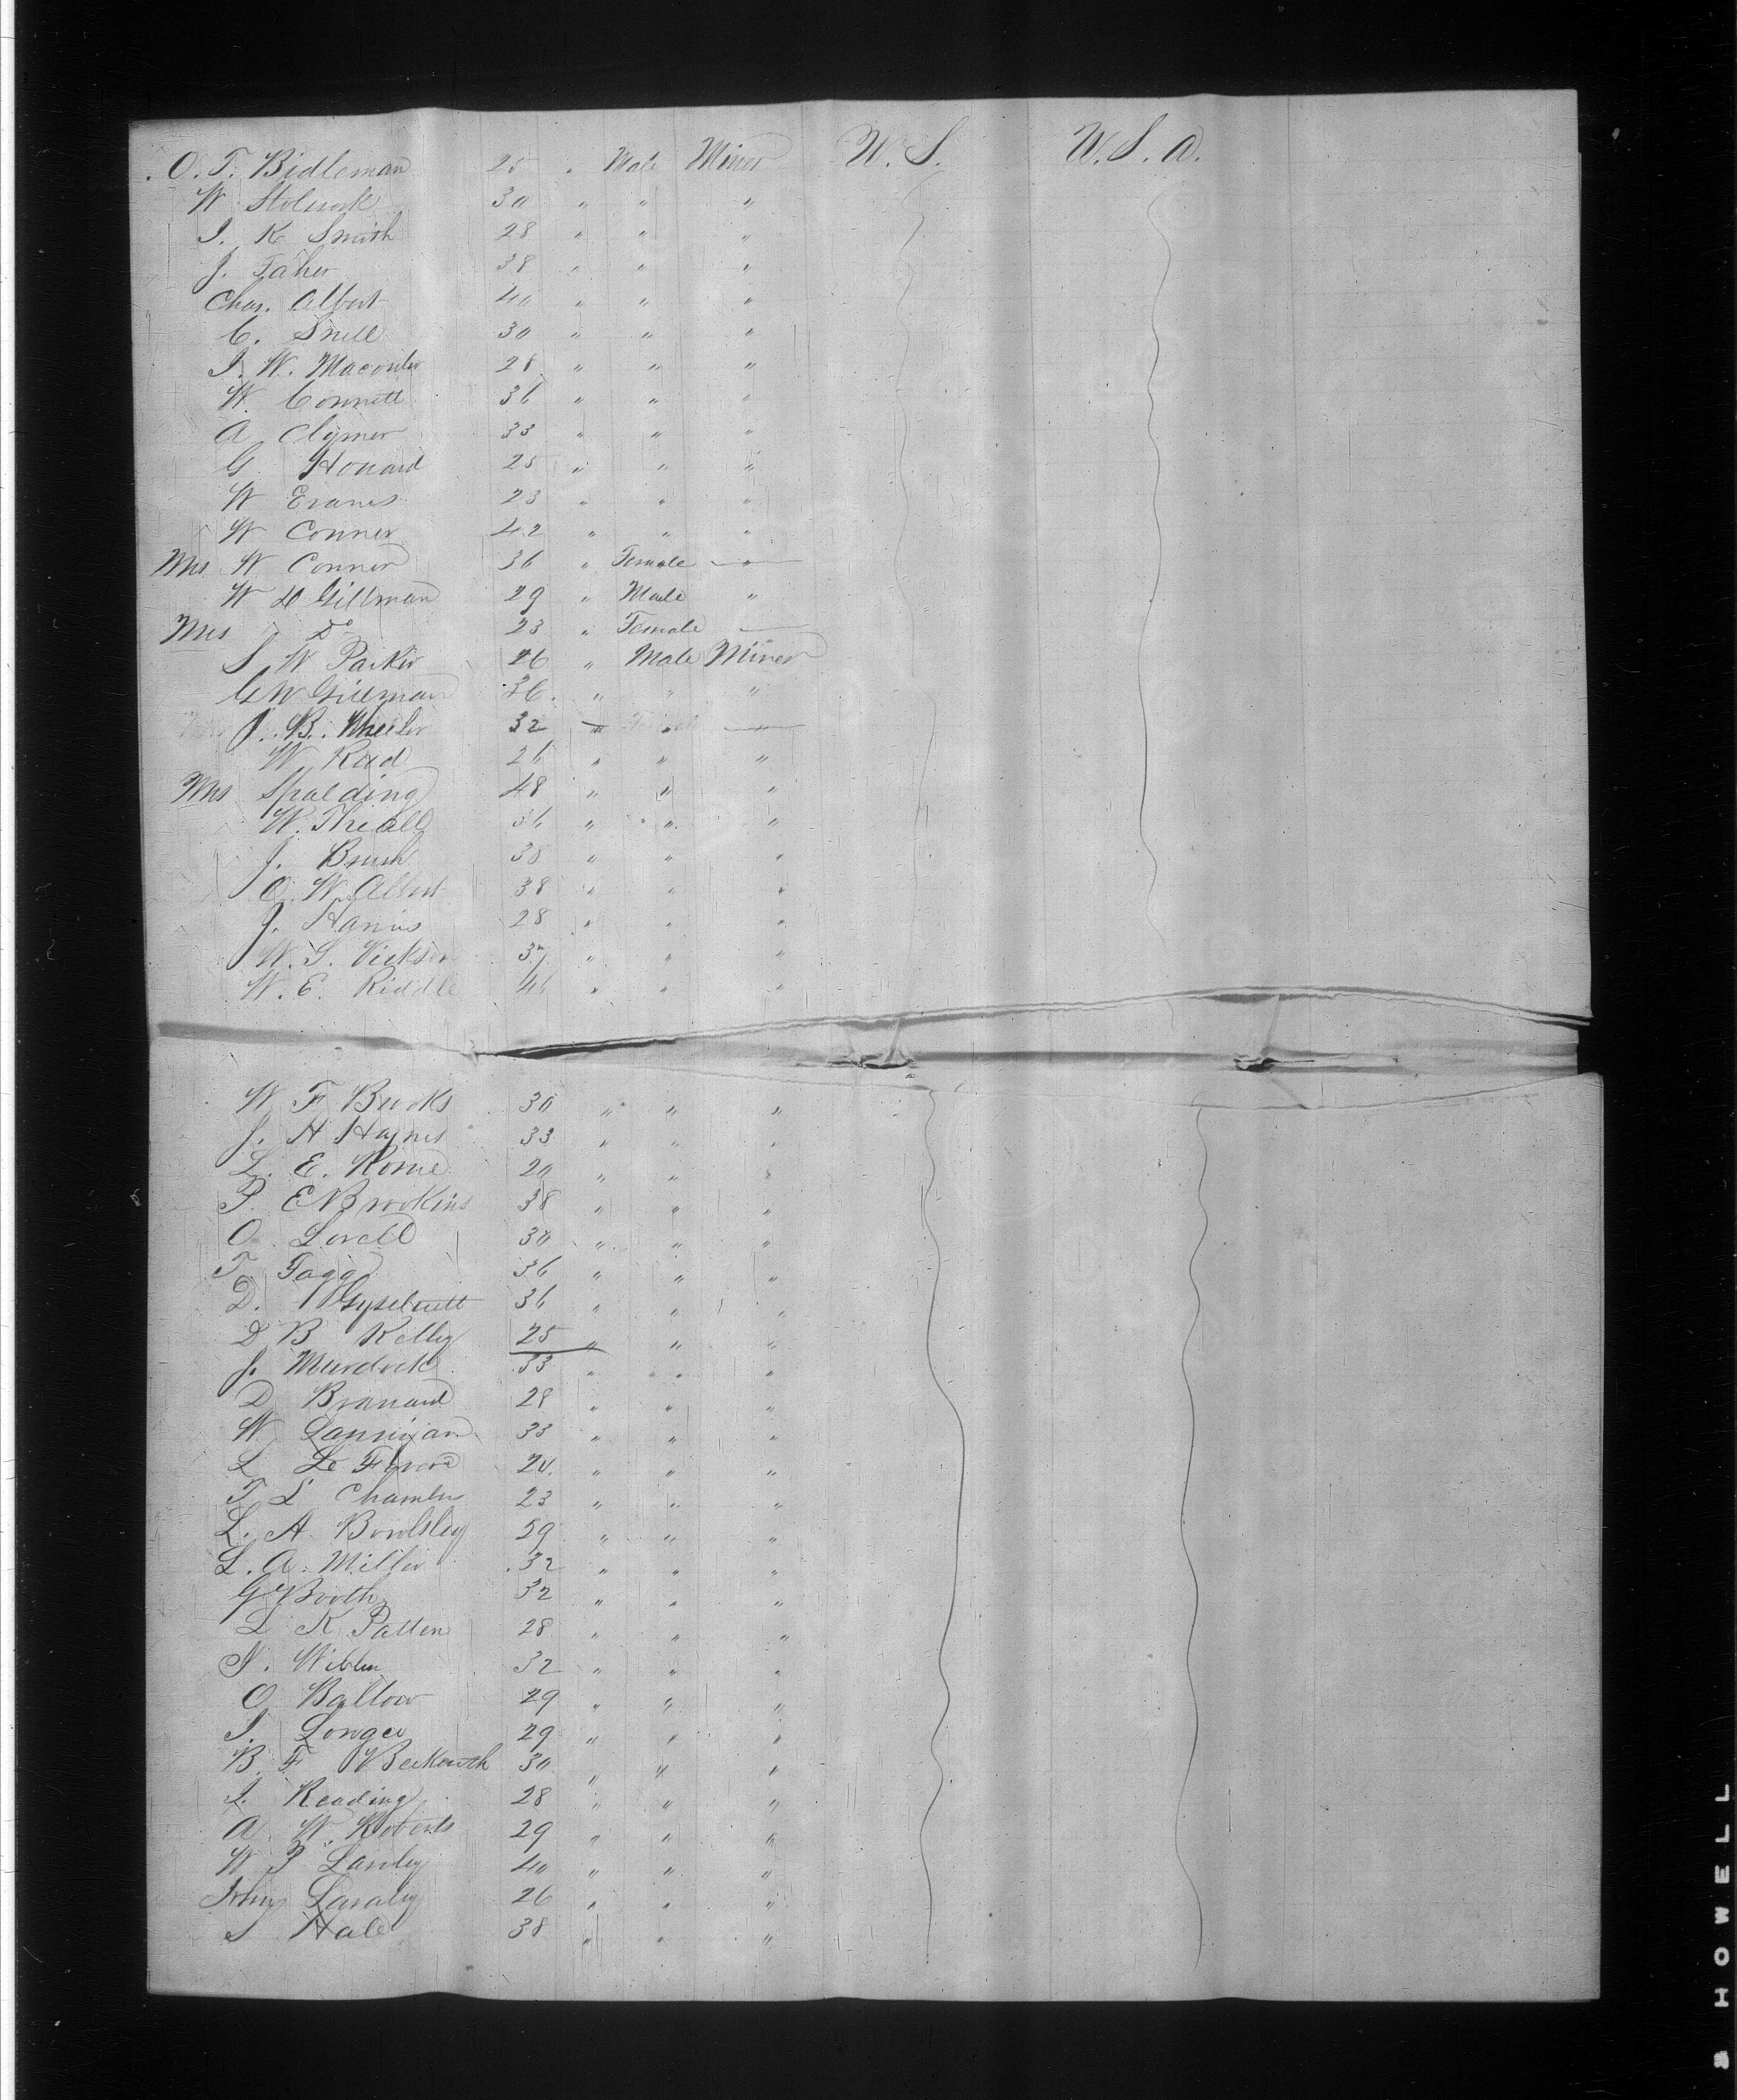 O. T. Bidleman 25 " Male Miner U. S. U. S. A.
W 30 " " "
J. K Smith 28 " " "
J. Taher 38 " " "
Chas. Albert 40 " " "
C. Snell 30 " " "
J. W. Macomber 28 " " "
W. Connett 36 " " "
A Clymer 33 " " "
G Howard 25 " " "
W Evans 23 " " "
W Conner 42 " " "
Mrs W Conner 36 " Female — " —
W H Gillman 29 " Male "
Mrs Do 23 " Female —
S. W Parker 26 " Male Miner
G W Gillman 36 " " "
J. B. Wheeler 32 " " "
W Reed 26 " " "
Mrs Spalding 48 " " "
W. Theall 36 " " "
J. Brush 38 " " "
C. W. Albert 38 " " "
J. Harris 28 " " "
W. S. Vickson 37 " " "
W. E. Riddle 46 " " "
W F Brooks 30 " " "
J. H Haynes 33 " " "
L. E. Rowe 20 " " "
P. E Brookins 38 " " "
O Lovell 30 " " "
T. Tagg 36 " " "
D. 36 " " "
D B Kelly 25 " " "
J. Murdock 33 " " "
D Branard 28 " " "
W Lannigan 33 " " "
L Le Fevre 20. " " "
T L Chamber 23 " " "
L. A. Bowlsley 59 " " "
L. A. Miller 32 " " "
G Booth 32 " " "
L K Patten 28 " " "
J. Wiblen 32 " " "
O Ballow 29 " " "
J. Longer 29 " " "
B. F Beckwith 30 " " "
J. Reading 28 " " "
A. W. Roberts 29 " " "
W P Lawley 40 " " "
John 26 " " "
S Hale 38 " " "
& HOWELL